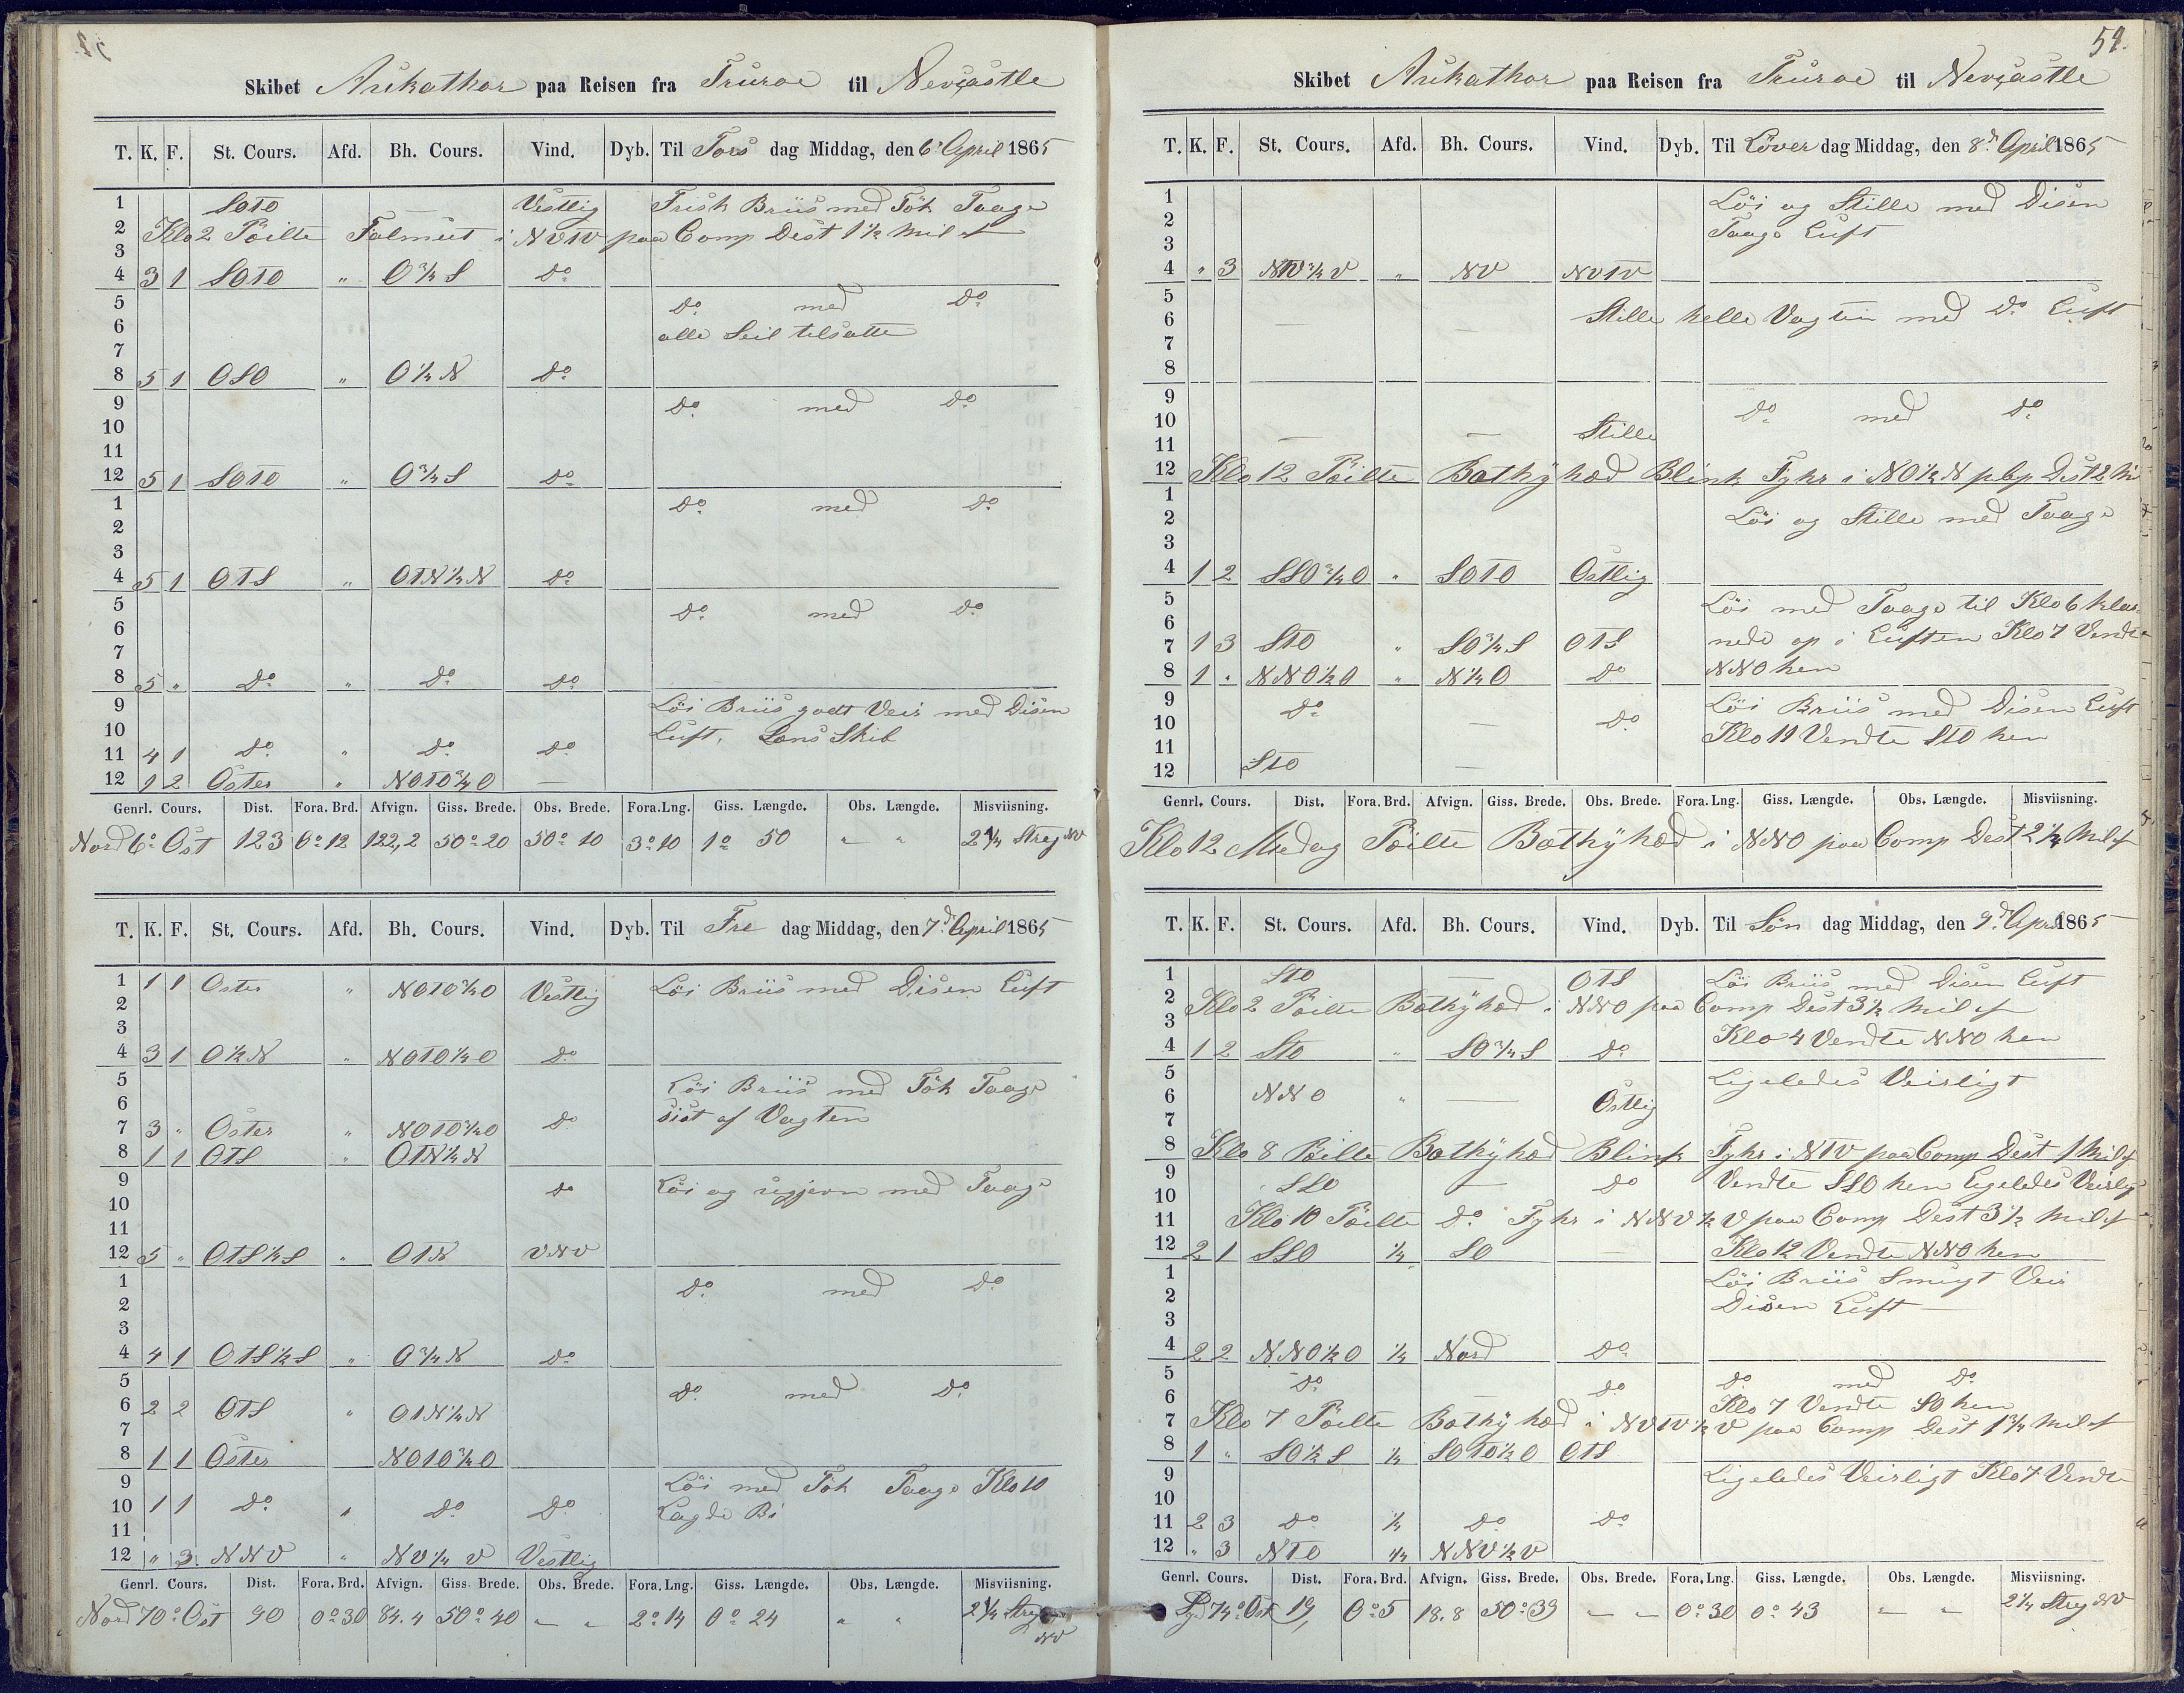 Skibet Aukathor paa Reisen fra Truroe til Nevcastle
T. K. F. St. Cours. Afd. Bh. Cours. Vind. Dyb. Til Tors dag Middag, den 6 April 1865
1 SOTO — Vestlig Frisk Briis med Tök Taage
2 Klo 2 Pöilte Falmut i NVTV paa Comp Dest 1 1/2 Mil af
3
4 3 1 SOTO " O 3/4 S Do
5 Do med Do
6 alle Seil tilsatte
7
8 5 1 OSO " O 1/4 N Do
9 Do med Do
10
11
12 5 1 SOTO " O 3/4 S Do
1 Do med Do
2
3
4 5 1 OTS " OTN 1/2 N Do
5 Do med Do
6
7
8 5 " Do " Do Do
9 Löi Briis godt Veir med Disen
10 Luft. Lens Skib
11 4 1 Do " Do Do
12 1 2 Öster " NOTO 3/4 O —
Genrl. Cours. Dist. Fora. Brd. Afvign. Giss. Brede. Obs. Brede. Fora. Lng. Giss. Længde. Obs. Længde. Misviisning.
Nord 6° Ost 123 0° 12 122,2 50° 20 50° 10 3° 10 1° 50 " " 2 1/4 Streg NV
T. K. F. St. Cours. Afd. Bh. Cours. Vind. Dyb. Til Fre dag Middag, den 7d April 1865
1 1 1 Öster " NOTO 3/4 O Vestlig Löi Briis med Disen Luft
2
3
4 3 1 O 1/2 N " NOTO 1/4 O Do
5 Löi Briis med Tök Taage
6 sist af Vagten
7 3 " Öster " NOTO 3/4 O Do
8 1 1 OTS " OTN 1/2 N
9 Do Löi og ugjevn med Taage
10
11
12 5 " OTS 1/2 S " OTN VNV
1 Do med Do
2
3
4 4 1 OTS 1/2 S " O 3/4 N Do
5 Do med Do
6 2 2 OTS " OTN 1/4 N
7
8 1 1 Öster NOTO 3/4 O
9 Löi med Tök Taage Klo 10
10 1 1 Do " Do Do Lagde Bi
11
12 " 3 NNV " NV 1/4 V Vestlig
Genrl. Cours. Dist. Fora. Brd. Afvign. Giss. Brede. Obs. Brede. Fora. Lng. Giss. Længde. Obs. Længde. Misviisning.
Nord 70° Ost 90 0° 30 84.4 50° 40 — " 2° 14 0° 24 " " 2 1/4 Streg NV
59.
Skibet Aukathor paa Reisen fra Truroe til Nevcastle
T. K. F. St. Cours. Afd. Bh. Cours. Vind. Dyb. Til Löver dag Middag, den 8d April 1865
1 Löi og Stille med Disen
2 Taage Luft
3
4 " 3 NTV 3/4 V " NV NVTV
5
6 — — Stille helle Vagten med Do Luft
7
8
9
10 Do med Do
11 — — Stille
12 Klo 12 Pöilte Bæthÿhæd Blink Fyhr i NO 1/2 N pbp Dest 2 Mi
1
2 Löi og Stille med Taage
3
4 1 2 SSO 3/4 O " SOTO Ostlig
5 Löi med Taage til Klo 6 klar-
6
7 1 3 STO " SO 3/4 S OTS nede op i Luften Klo 7 Vendte
8 1 " NNO 1/2 O " N 1/4 O Do NNO hen
9 Do — Do Löi Briis med Disen Luft
10
11 Klo 11 Vendte STO hen
12 STO —
Genrl. Cours. Dist. Fora. Brd. Afvign. Giss. Brede. Obs. Brede. Fora. Lng. Giss. Længde. Obs. Længde. Misviisning.
Klo 12 Medag Pöilte Bæthÿhæd i NNO paa Comp Dest 2 1/4 Mil af
T. K. F. St. Cours. Afd. Bh. Cours. Vind. Dyb. Til Sön dag Middag, den 9d April 1865
1 STO — OTS Löi Briis med Disen Luft
2 Klo 2 Pöilte Bæthÿhæd i NNO paa Comp Dest 3 1/2 Mil af
3
4 1 2 STO " SO 3/4 S Do Klo 4 Vendte NNO hen
5 Ligeledes Veirligt
6 NNO " — Ostlig
7
8 Klo 8 Pöilte Bæthÿhæd Blink Fyhr i NTV paa Comp Dest 1 Mil af
9 SSO — Do Vendte SSO hen Ligeledes Veirligt
10
11 Klo 10 Pöilte Do Fyhr i NNV 1/2 V paa Comp Dest 3 1/2 Mil af
12 2 1 SSO 1/4 SO — Klo 12 Vendte NNO hen
1 Löi Briis Smugt Veir
2 Disen Luft —
3
4 2 2 NNO 1/2 O 1/4 Nord Do
5 Do — Do Do med Do
6 Klo 7 Vendte SO hen
7 Klo 7 Pöilte Bæthÿhæd i NVTV 1/2 V paa Comp Dest 1 3/4 Mil af
8 1 " SO 1/2 S 1/4 SOTO 1/2 O OTS
9 Ligeledes Veirligt Klo 7 Vendte
10
11 2 3 Do 1/4 Do Do
12 " 3 NTO 1/4 NNV 1/2 V
Genrl. Cours. Dist. Fora. Brd. Afvign. Giss. Brede. Obs. Brede. Fora. Lng. Giss. Længde. Obs. Længde. Misviisning.
Syd 74° Ost 19 0° 5 18.8 50° 39 — — 0° 30 0° 43 — — 2 1/4 Streg NV